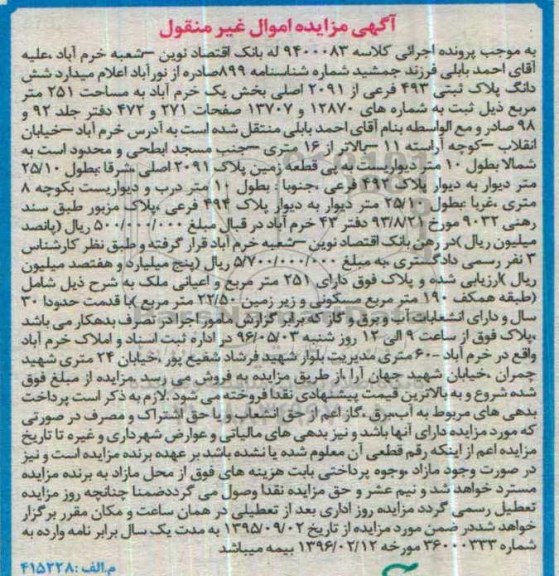 آگهی مزایده اموال غیر منقول
به موجب پرونده اجرائی کلاسه ۹۴۰۰۰۸۳ له بانک اقتصاد نوین –شعبه خرم آباد ،علیه
آقای احمد بابلی فرزند جمشید شماره شناسنامه ۸۹۹صادره از نورآباد اعلام میدارد شش
دانگ پلاک ثبتی ۴۹۳ فرعی از ۲۰۹۱ اصلی بخش یک خرم آباد به مساحت ۲۵۱ متر
مربع ذیل ثبت به شماره های ۱۲۸۷۰ و ۱۳۷۰۷ صفحات ۲۷۱ و ۴۷۳ دفتر جلد ۹۲ و
۹۸ صادر و مع الواسطه بنام آقای احمد بابلی منتقل شده است به آدرس خرم آباد –خیابان
انقلاب –کوچه آراسته ۱۱ –بالاتر از ۱۶ متری –جنب مسجد ابطحی و محدود است به
شمالا بطول ۱۰ متر دیواریست به پی قطعه زمین پلاک ۲۰۹۱ اصلی ،شرقا :بطول ۲۵/۱۰
متر دیوار به دیوار پلاک ۴۹۲ فرعی ،جنوبا : بطول ۱۰ متر درب و دیواریست بکوچه ۸
متری ،غربا :بطول ۲۵/۱۰ متر دیوار به دیوار پلاک ۴۹۴ فرعی ،پلاک مزبور طبق سند
رهنی ۹۰۳۲ مورخ ۹۳/۸/۲۱ دفتر ۴۳ خرم آباد در قبال مبلغ ۵۰۰/۰۰۰/۰۰۰ ریال (پانصد
میلیون ریال )در رهن بانک اقتصاد نوین –شعبه خرم آباد قرار گرفته و طبق نظر کارشناس
۳ نفر رسمی دادگستری ،به مبلغ ۵/۷۰۰/۰۰۰/۰۰۰ ریال (پنج میلیارد و هفتصد میلیون
ریال )ارزیابی شده و پلاک فوق دارای ۲۵۱ متر مربع و اعیانی ملک به شرح ذیل شامل
(طبقه همکف ۱۹۰ متر مربع مسکونی و زیر زمین ۲۲/۵۰ متر مربع )با قدمت حدودا ۳۰
سال و دارای انشعابات آب و برق و گاز که برابر گزارش مامور اجرا در تصرف بدهکار می باشد
،پلاک فوق از ساعت ۹ الی ۱۲ روز شنبه ۹۶/۰۵/۰۳ در اداره ثبت اسناد و املاک خرم آباد
واقع در خرم آباد –۶۰ متری مدیریت بلوار شهید فرشاد شفیع پور ،خیابان ۲۴ متری شهید
چمران ،خیابان شهید جهان آرا ،از طریق مزایده به فروش می رسد .مزایده از مبلغ فوق
شده شروع و به بالاترین قیمت پیشنهادی نقدا فروخته می شود .لازم به ذکر است پرداخت
بدهی های مربوط به آب،برق ،گاز اعم از حق انشعاب و یا حق اشتراک و مصرف در صورتی
که مورد مزایده دارای آنها باشد و نیز بدهی های مالیاتی و عوارض شهرداری و غیره تا تاریخ
مزایده اعم از اینکه رقم قطعی آن معلوم شده یا نشده باشد بر عهده برنده مزایده است و نیز
در صورت وجود مازاد ،وجوه پرداختی بابت هزینه های فوق از محل مازاد به برنده مزایده
مسترد خواهد شد و نیم عشر و حق مزایده نقدا وصول می گرددضمنا چنانچه روز مزایده
تعطیل رسمی گردد مزایده روز اداری بعد از تعطیلی در همان ساعت و مکان مقرر برگزار
خواهد شددر ضمن مورد مزایده از تاریخ ۱۳۹۵/۰۹/۰۲ به مدت یک سال برابر نامه وارده به
شماره ۳۶۰۰۰۳۳۳ مورخه ۱۳۹۶/۰۲/۱۲ بیمه میباشد
م.الف :۴۱۵۲۲۸